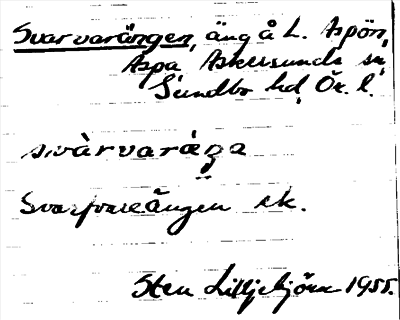 Svarvarängen, äng å L. Aspön,
Aspa Askersunds sn
Sundbo hd, Ör. l.
svàrvaràŋa
Svarfvareängen ek.
Sten Lilljebjörn 1955.